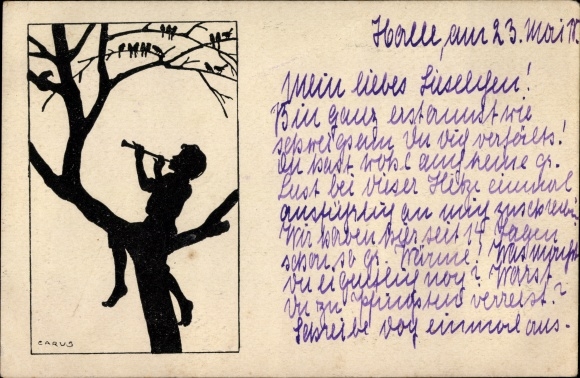 Halle, am 23. Mai 18.
Mein liebes Lieselchen!
Bin ganz erstaunt wie
schweigsam du dich verhälts!
Du hast wohl auch keine gr.
Lust bei dieser Hitze einmal
ausführlich an mich zu schreiben!
Wir haben hier seit 14 Tagen
schon so gr. Wärme! Was machst
du eigentlich noch? Warst
du zu Pfingsten verreist?
Schreibe doch einmal aus-
CARUS